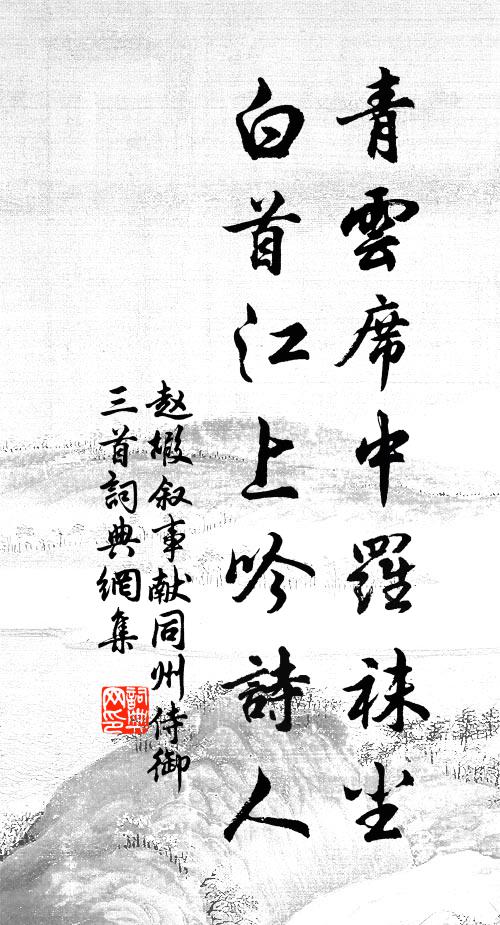 青雲席中羅袜尘
白首江上吟詩人
赵嘏叙事献同州侍御
三首詞典網集
詞典
网印